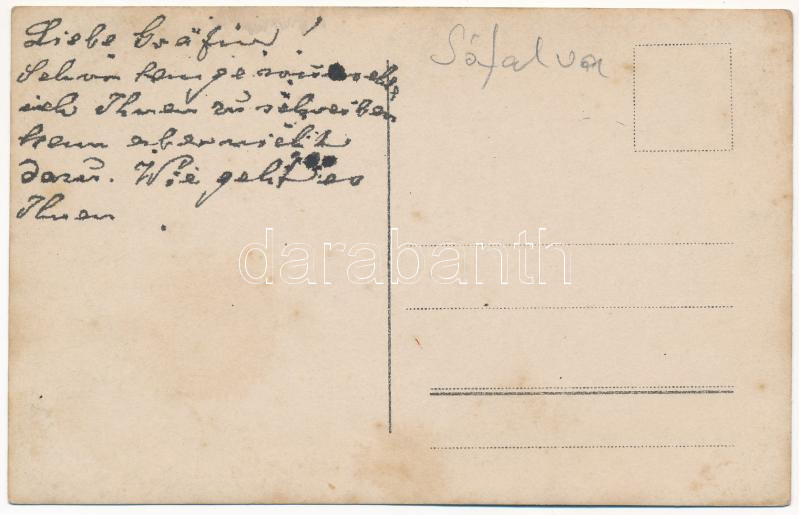 Liebe Gräfin!
Schon lange wünscht
ich Ihnen zu schreiben
kam aber nicht
dazu. Wie geht es
Ihnen
Sófalva
darabanth